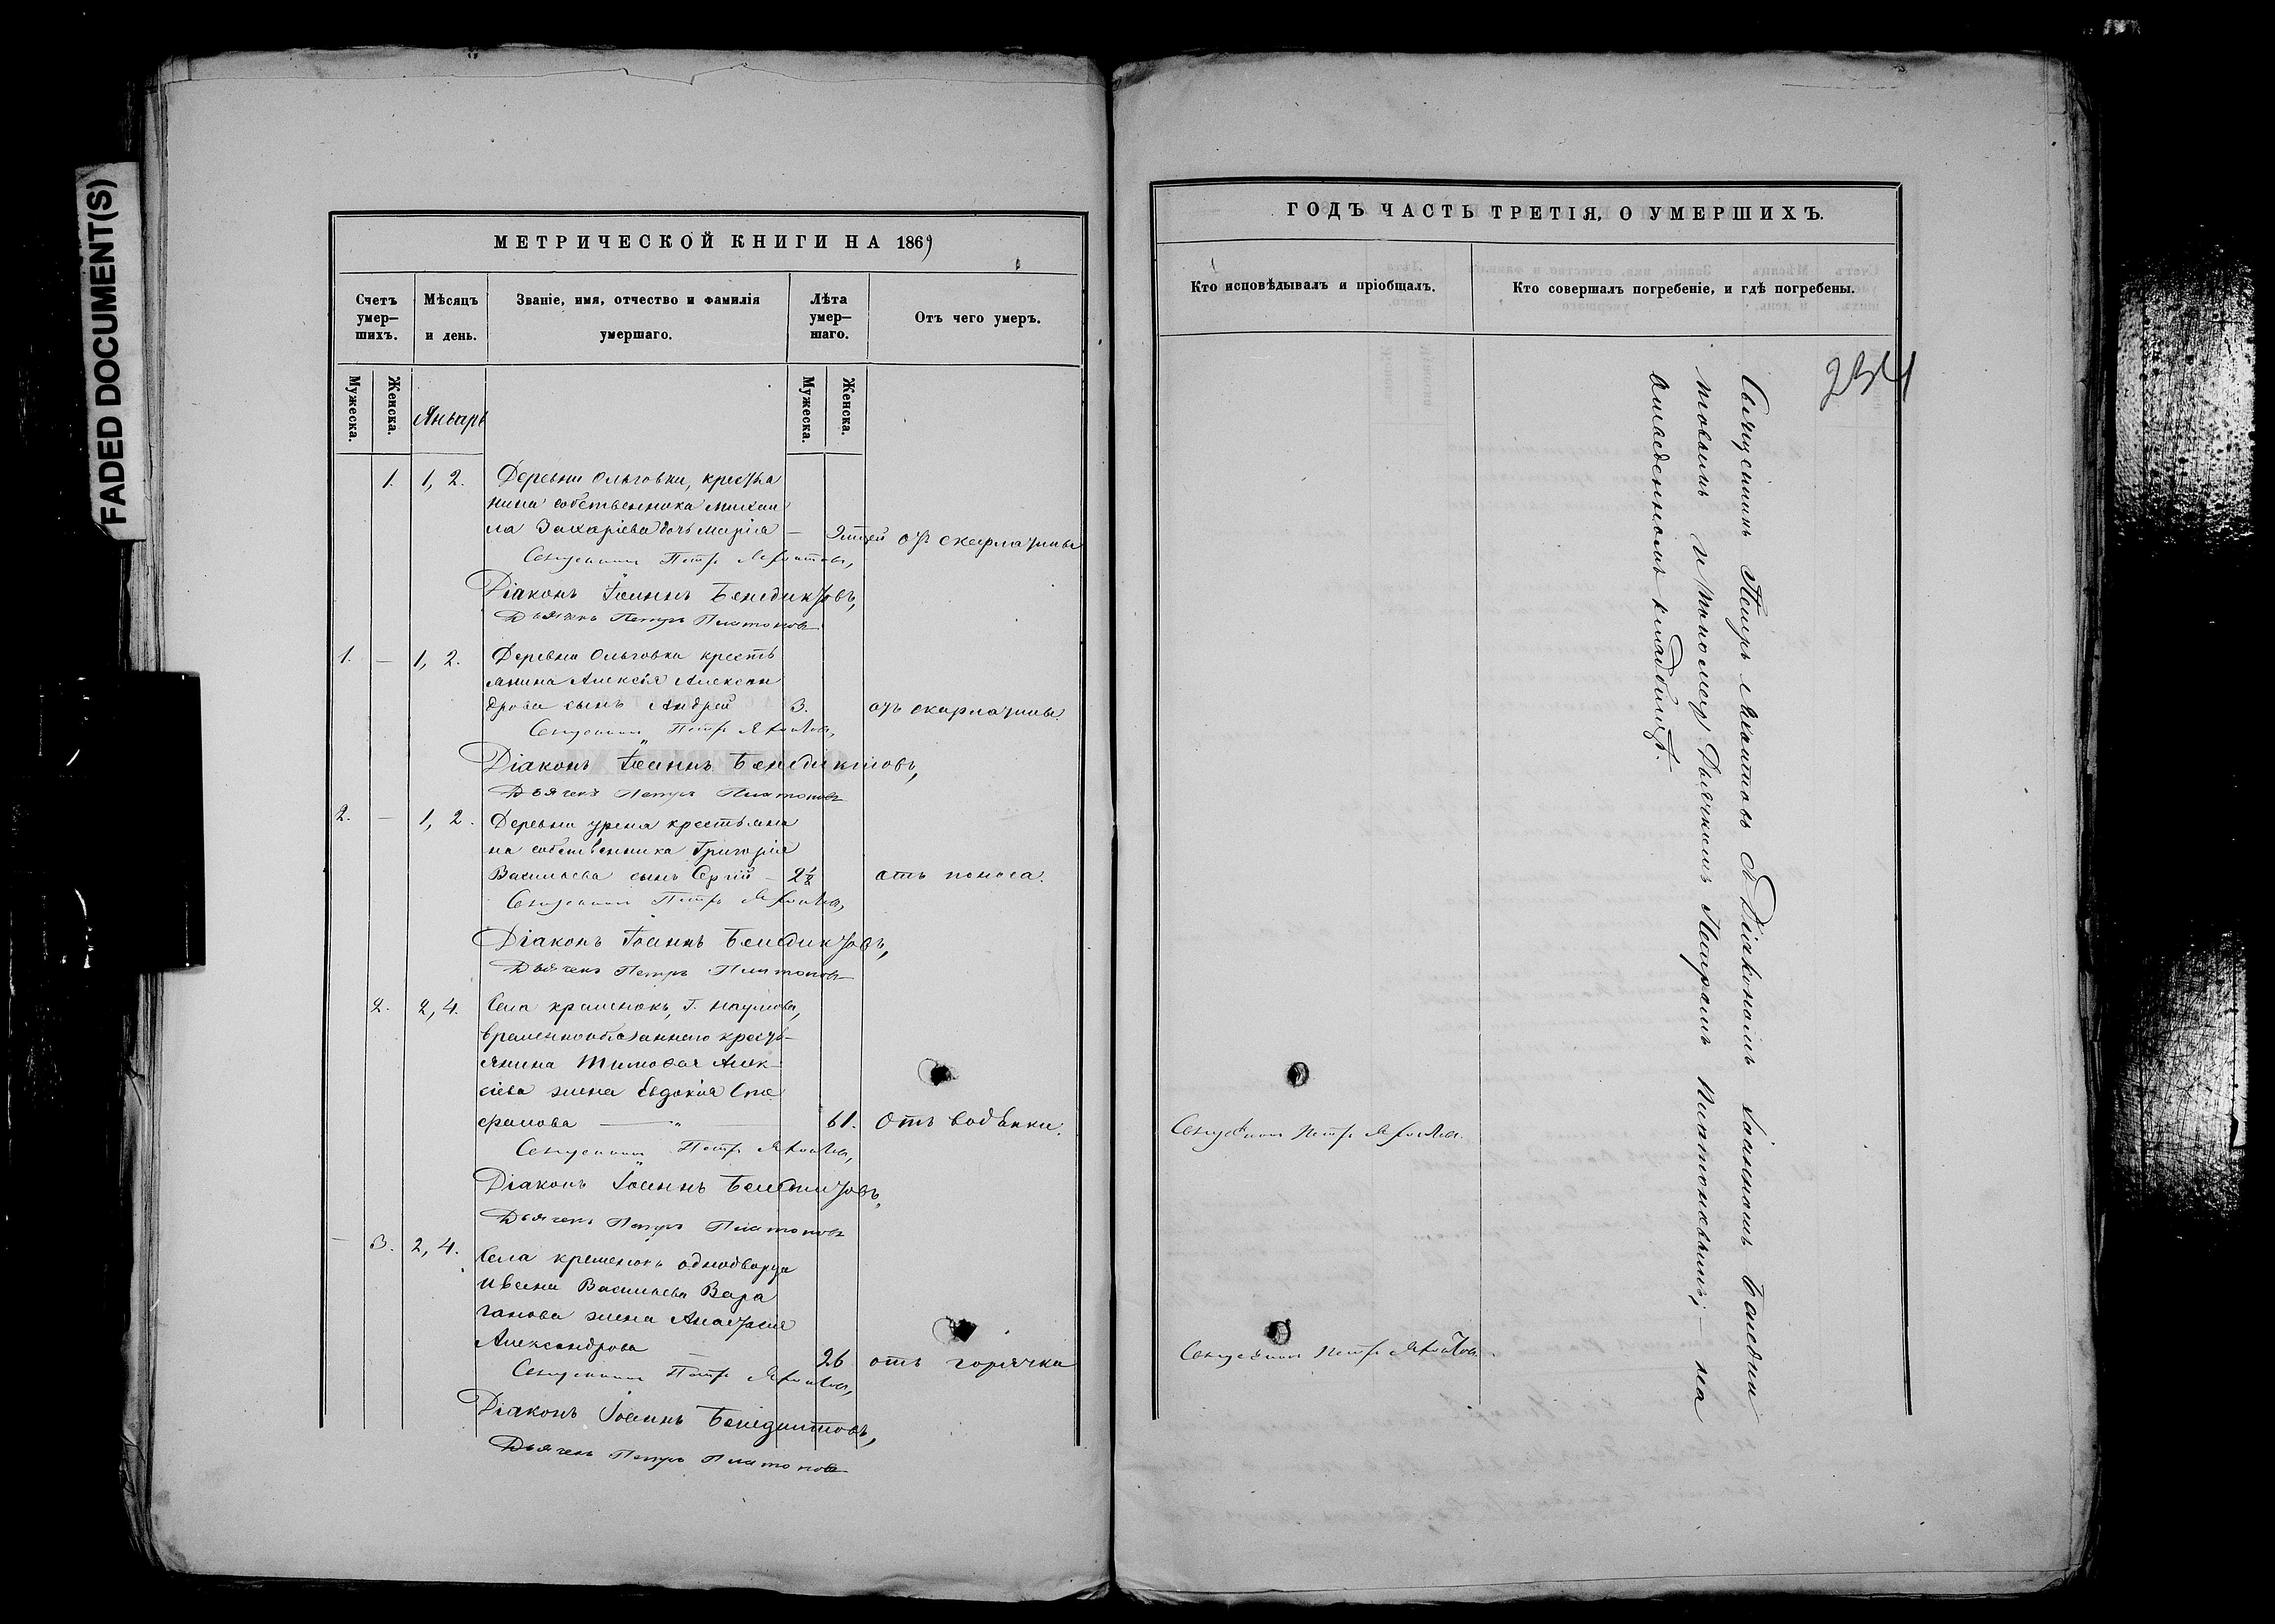 FADED DOCUMENT(S)
МЕТРИЧЕСКОЙ КНИГИ НА 1869
Счетъ умер—шихъ.
Мѣсяцъ и день.
Званіе, имя, отчество и фамилія умершаго.
Лѣта умер—шаго.
Отъ чего умеръ.
Мужеска.
Женска.
Январь
Мужеска.
Женска.
1. 1, 2. Деревни Ольговки, крестья
нина собственника Михаи
ла Захаріева дочь Марія — отъ скарлатины
Священникъ Петръ
Діаконъ Іоаннъ Бенедиктовъ,
Дьячекъ Петръ Платоновъ
1. — 1, 2. Деревни Ольговки кресть
янина Алексѣя Алексан
дрова сынъ Андрей 3. отъ скарлатины.
Священникъ Петръ
Діаконъ Іоаннъ Бенедиктовъ,
Дьячекъ Петръ Платоновъ
2. — 1, 2. Деревни урена крестьяни
на собственника Григорія
Васильева сынъ Сергій — 2½ отъ поноса.
Священникъ Петръ
Діаконъ Іоаннъ Бенедиктовъ,
Дьячекъ Петръ Платоновъ
2. 2, 4. Села кременокъ, Г. Наумова,
временнообязаннаго кресть—
янина Тимофея Алек—
сіева жена Евдокія Сте
фанова — „ — 61. Отъ водянки.
Священникъ Петръ
Діаконъ Іоаннъ Бенедиктовъ,
Дьячекъ Петръ Платоновъ
— 3. 2, 4. Села кременокъ однодворца
Ивана Васильева Вара
ганова жена Анастасія
Александрова — 26 отъ горячки
Священникъ Петръ
Діаконъ Іоаннъ Бенедиктовъ,
Дьячекъ Петръ Платоновъ
ГОДЪ ЧАСТЬ ТРЕТІЯ, О УМЕРШИХЪ.
Кто исповѣдывалъ и пріобщалъ.
Кто совершалъ погребеніе, и гдѣ погребены.
234
Священникъ Петръ съ Діакономъ Іоанномъ Бенедик
товымъ и Дьячкомъ Петромъ Платоновымъ; — на
кладбищѣ.
Священникъ Петръ
Священникъ Петръ